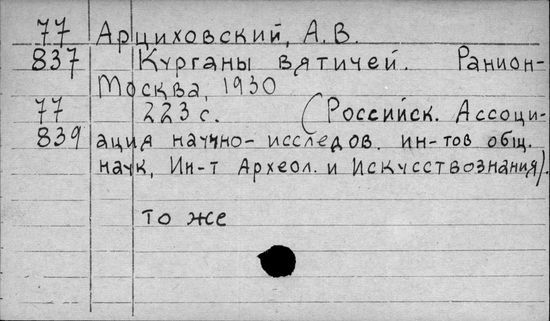 77 Арциховский, А.В.
837 Курганы вятичей. Ранион-
Москва, 1930
77 223 с. (Российск. Ассоци-
839 ация научно-исследов. ин-тов общ.
наук, Ин-т Археол. и Искусствознания).
то же